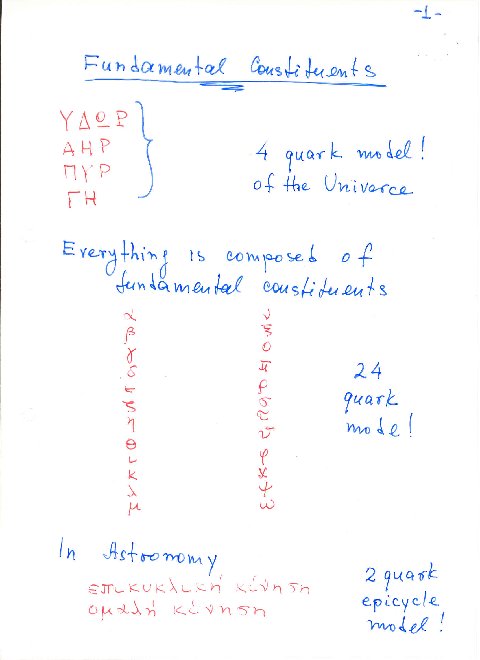 -1-
Fundamental Constituents
ΥΔΩΡ
ΑΗΡ
ΠΥΡ
ΓΗ
4 quark model!
of the Univerce
Everything is composed of
fundamental constituents
α
β
γ
δ
ε
ζ
η
θ
ι
κ
λ
μ
ν
ξ
ο
π
ρ
σ
τ
υ
φ
χ
ψ
ω
24
quark
model!
In Astronomy
επικυκλική κίνηση
ομαλή κίνηση
2 quark
epicycle
model!